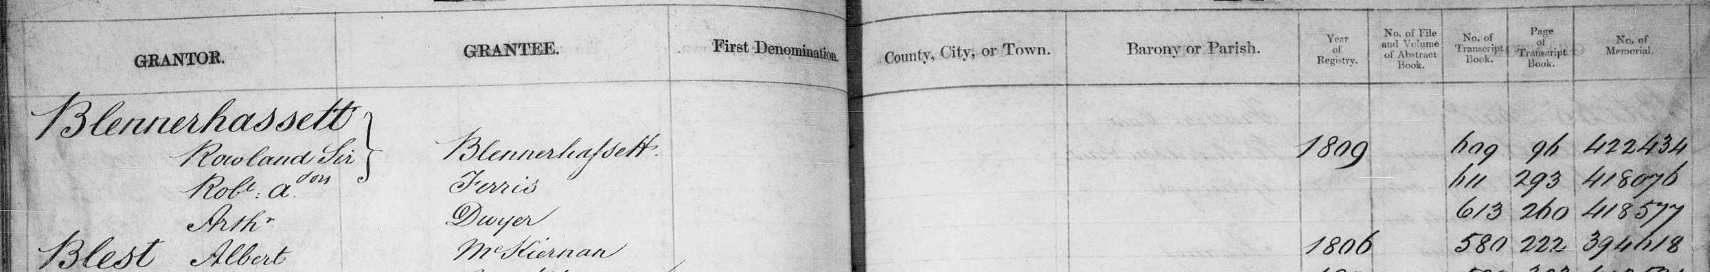 GRANTOR. GRANTEE. First Denomination. County, City, or Town. Barony or Parish. Year of Registry. No. of File and Volume of Abstract Book. No. of Transcript Book. Page of Transcript Book. No. of Memorial.
Blennerhassett
Rowland Sir Blennerhassett. 1809 609 96 422434
Robt. a dors Ferris 611 293 418076
Arthr Dwyer 613 260 418577
Blest Albert McKiernan 1806 580 222 394618